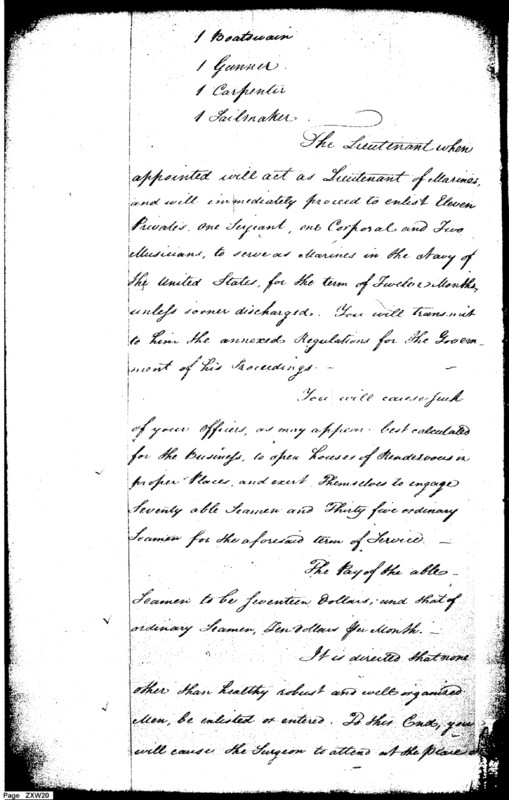 1 Boatswain
1 Gunner
1 Carpenter
1 Sailmaker.
The Lieutenant when
appointed will act as Lieutenant of Marines,
and will immediately proceed to enlist Eleven
Privates, one Sergeant, one Corporal and Two
Musicians, to serve as Marines in the Navy of
the United States, for the term of Twelve Months,
unless sooner discharged. You will transmit
to him the annexed Regulations for the Govern-
ment of his Proceedings. —
You will cause such
of your officers, as may appear best calculated
for the Business, to open houses of Rendezvous in
proper Places, and exert Themselves to engage
Seventy able Seamen and Thirty five ordinary
Seamen for the aforesaid term of Service. —
The Pay of the able
Seamen to be seventeen Dollars; and that of
ordinary Seamen, Ten Dollars Per Month. —
It is directed that none
other than healthy robust and well organized
Men, be enlisted or entered. To this End, you
will cause the Surgeon to attend at the place
Page ZXW20